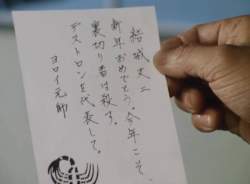 結城丈二
新年おめでとう。今年こそ、
裏切り者は殺す。
デストロンを代表して。
ヨロイ元帥